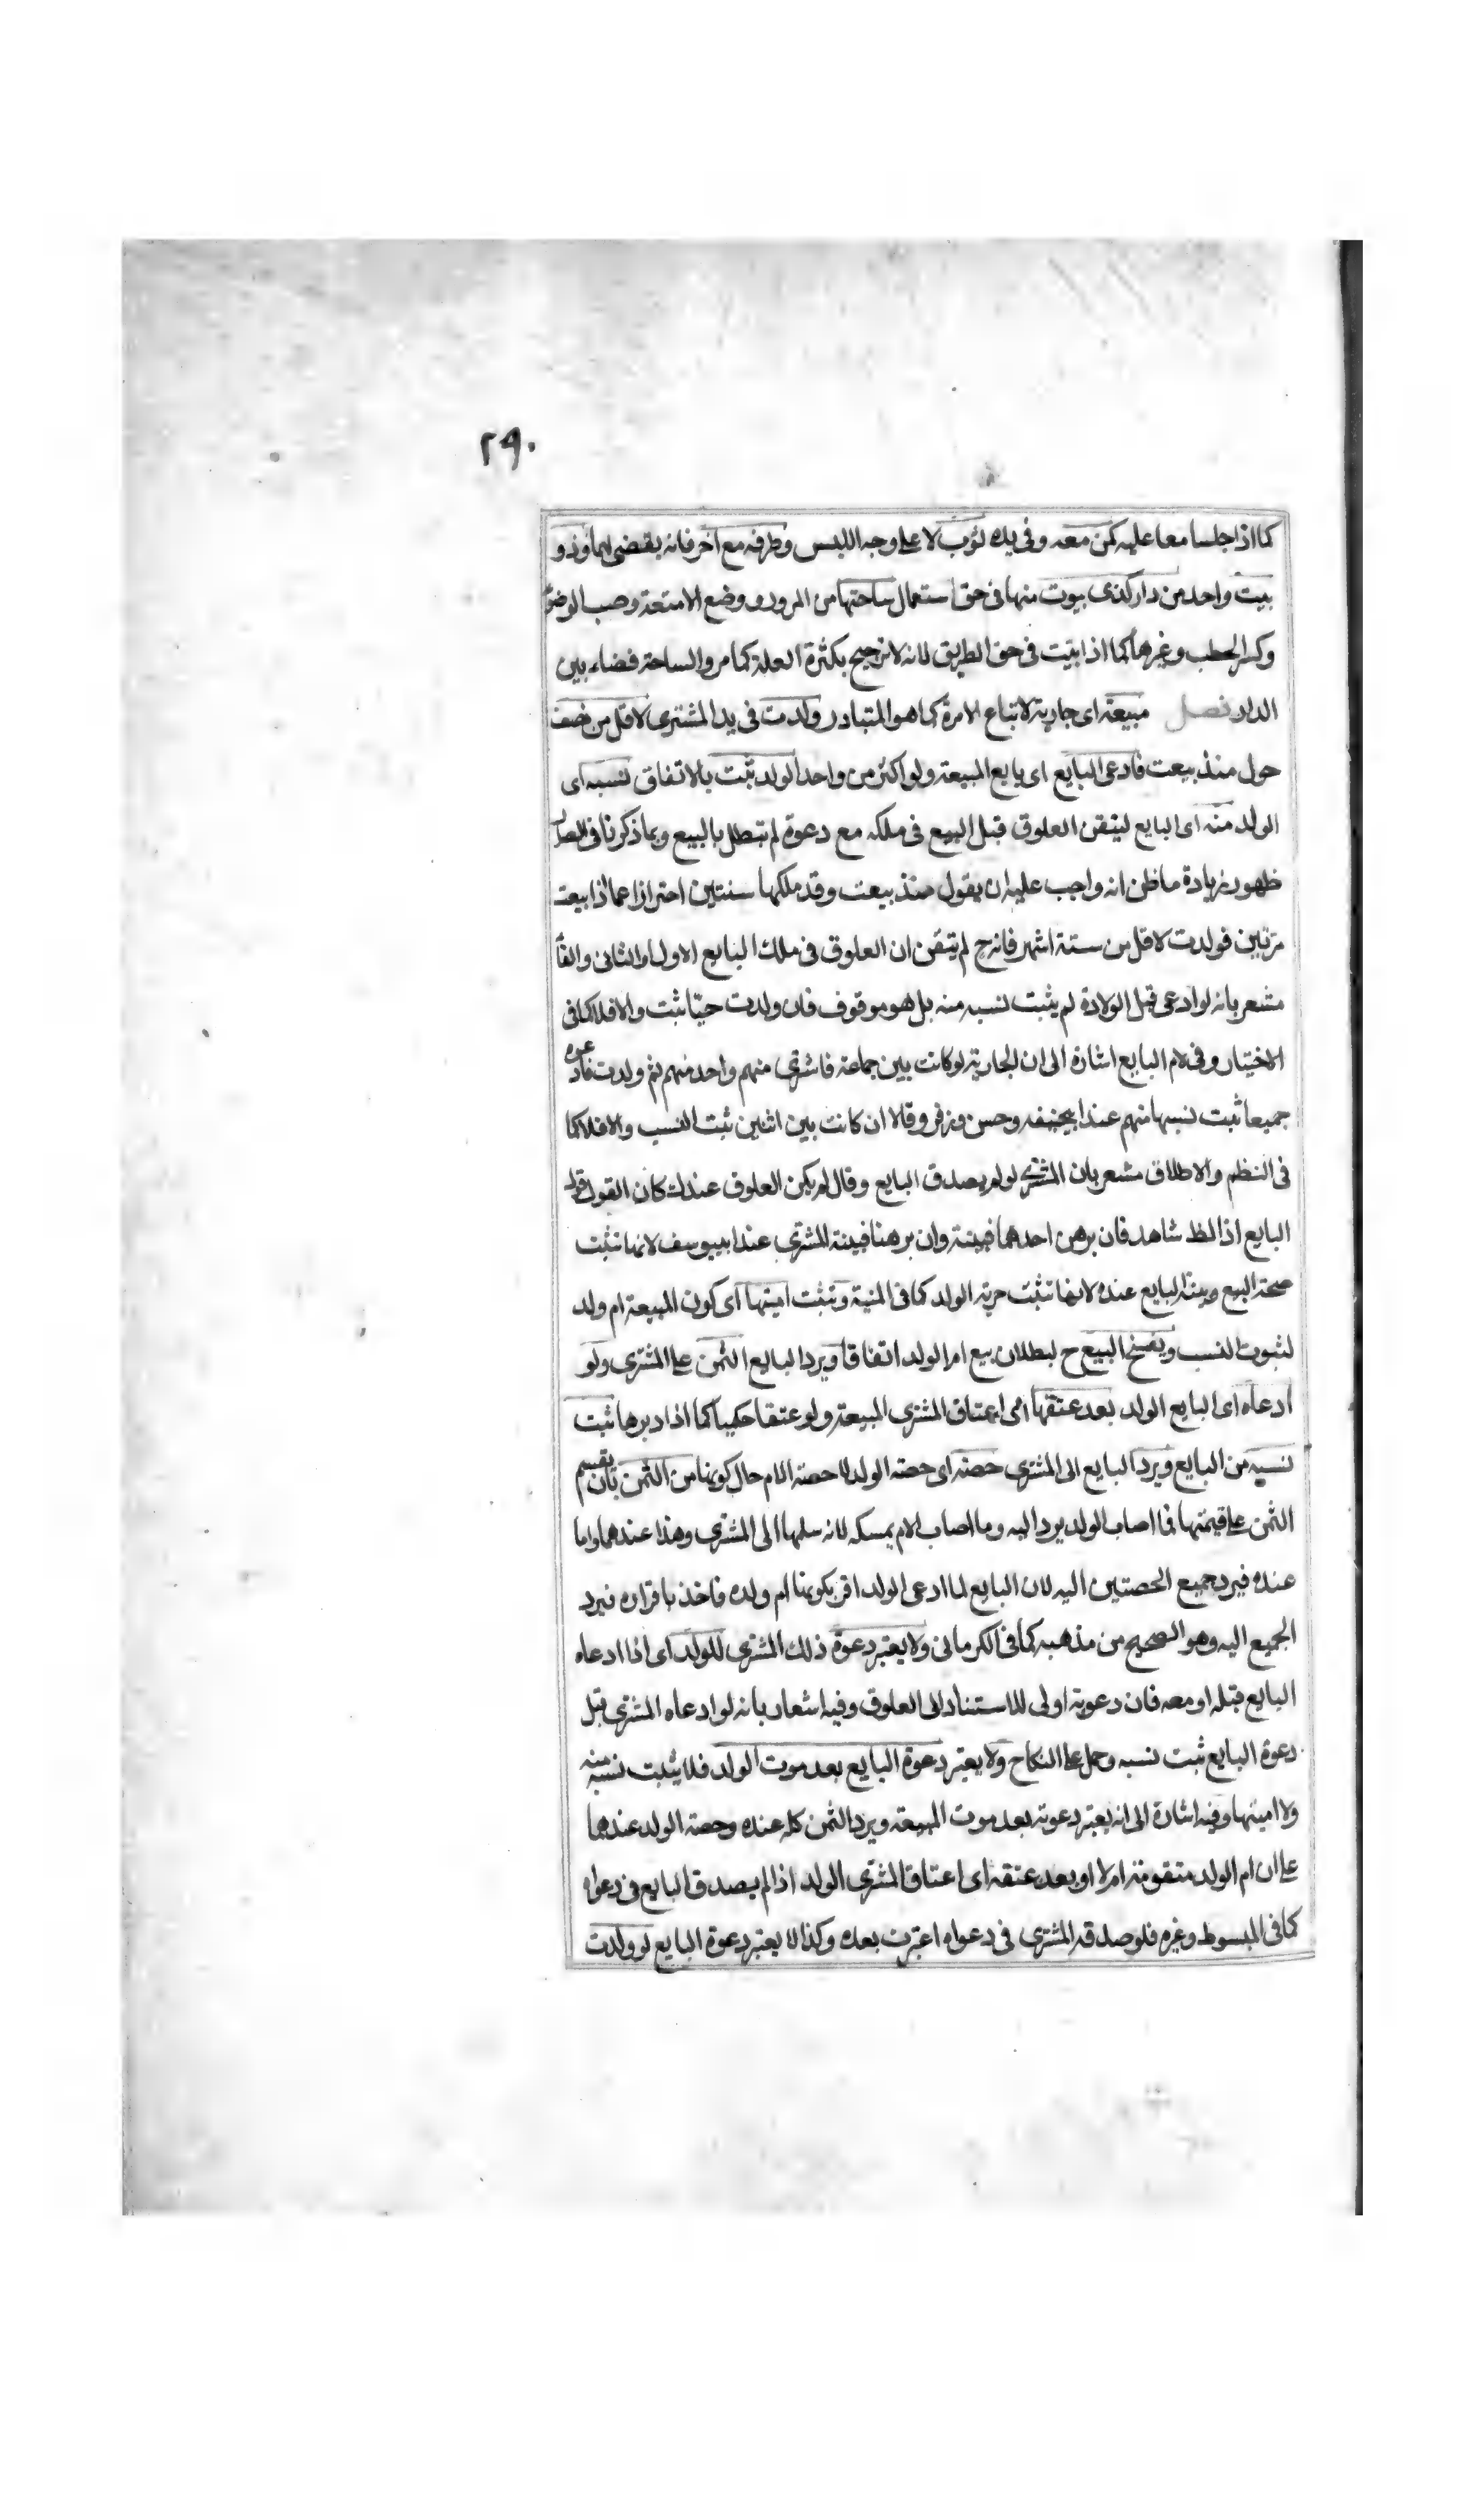 ٢٩٠
كما اذا جلسا معا عليه كمن معه وفى يده ثوب لا على وجه اللبس وطرفه مع آخر فانه يقضى لهما وذو
بيت واحد من دار كذى بيوت منها فى حق استعمال ساحتها من المرور ووضع الامتعة وصب الوضو
وكسر الحطب وغيرها كما اذا بيت فى حق الطريق لانه لا ترجيح بكثرة العلة كما مر والساحة فضاء بين
الدار فصل مبيعة اى جارية لاتباع الامرة كما هو المتبادر ولدت فى يد المشترى لاقل من نصف
حول منذ بيعت فادعى البايع اى بايع المبيعة ولو اكثر من واحد الولد ثبت بالاتفاق نسبه اى
الولد منه اى البايع ليتقن العلوق قبل البيع فى ملكه مع دعوة لم تبطل بالبيع وبما ذكرنا فى الصدر
ظهور زيادة ما ظن انه واجب عليه ان يقول منذ بيعت وقد ملكها سنتين احترازا عما اذا بيعت
مرتين فولدت لاقل من ستة اشهر فانه ح لم يتقن ان العلوق فى ملك البايع الاول او الثانى والفا
مشعر بانه لو ادعى قبل الولادة لم يثبت نسبه منه بل هو موقوف فان ولدت حيا ثبت والا فلا كما فى
الاختيار وفى لام البايع اشارة الى ان الجارية لو كانت بين جماعة فاشترى منهم واحد منهم ثم ولدت فادعوه
جميعا ثبت نسبها منهم عند ابيحنيفه وحسن وزفر وقالا ان كانت بين اثنين ثبت النسب والا فلا كما
فى النظم والاطلاق مشعر بان المشترى لو لم يصدق البايع وقال لم يكن العلوق عندك كان القول قول
البايع اذ الظ شاهد فان برهن احدهما فبينته وان برهنا فبينة المشترى عند ابيوسف لانها تثبت
صحة البيع وبينة البايع عنده لانها تثبت حرية الولد كما فى المنية وتثبت اميتها اى كون المبيعة ام ولد
لثبوت النسب ويفسخ البيع ح لبطلان بيع ام الولد اتفاقا ويرد البايع الثمن على المشترى ولو
ادعاه اى البايع الولد بعد عتقها اى اعتاق المشترى المبيعة ولو عتقا حكميا كما اذا دبرها ثبت
نسبه من البايع ويرد البايع الى المشترى حصته اى حصة الولد لا حصة الام حال كونها من الثمن بان يقسم
الثمن على قيمتها فما اصاب الولد يرد اليه وما اصاب الام يمسكه لانه سلمها الى المشترى وهذا عندهما واما
عنده فيرد جميع الحصتين اليه لان البايع لما ادعى الولد اقر بكونها ام ولده فاخذ باقراره فيرد
الجميع اليه وهو الصحيح من مذهبه كما فى الكرمانى ولا يعتبر دعوة ذلك المشترى للولد اى اذا ادعاه
البايع قبله او معه فان دعوته اولى للاستناد الى العلوق وفيه اشعار بانه لو ادعاه المشترى قبل
دعوة البايع ثبت نسبه وحمل على النكاح ولا يعتبر دعوة البايع بعد موت الولد فلا يثبت نسبه منه
ولا اميتها وفيه اشارة الى انه يعتبر دعوته بعد موت المبيعة ويرد الثمن كله عنده وحصة الولد عندهما
على ان ام الولد متقومة ام لا او بعد عتقه اى اعتاق المشترى الولد اذا لم يصدق البايع فى دعواه
كما فى المبسوط وغيره فلو صدقه المشترى فى دعواه اعتبرت بعده وكذا لا يعتبر دعوة البايع لو ولدت